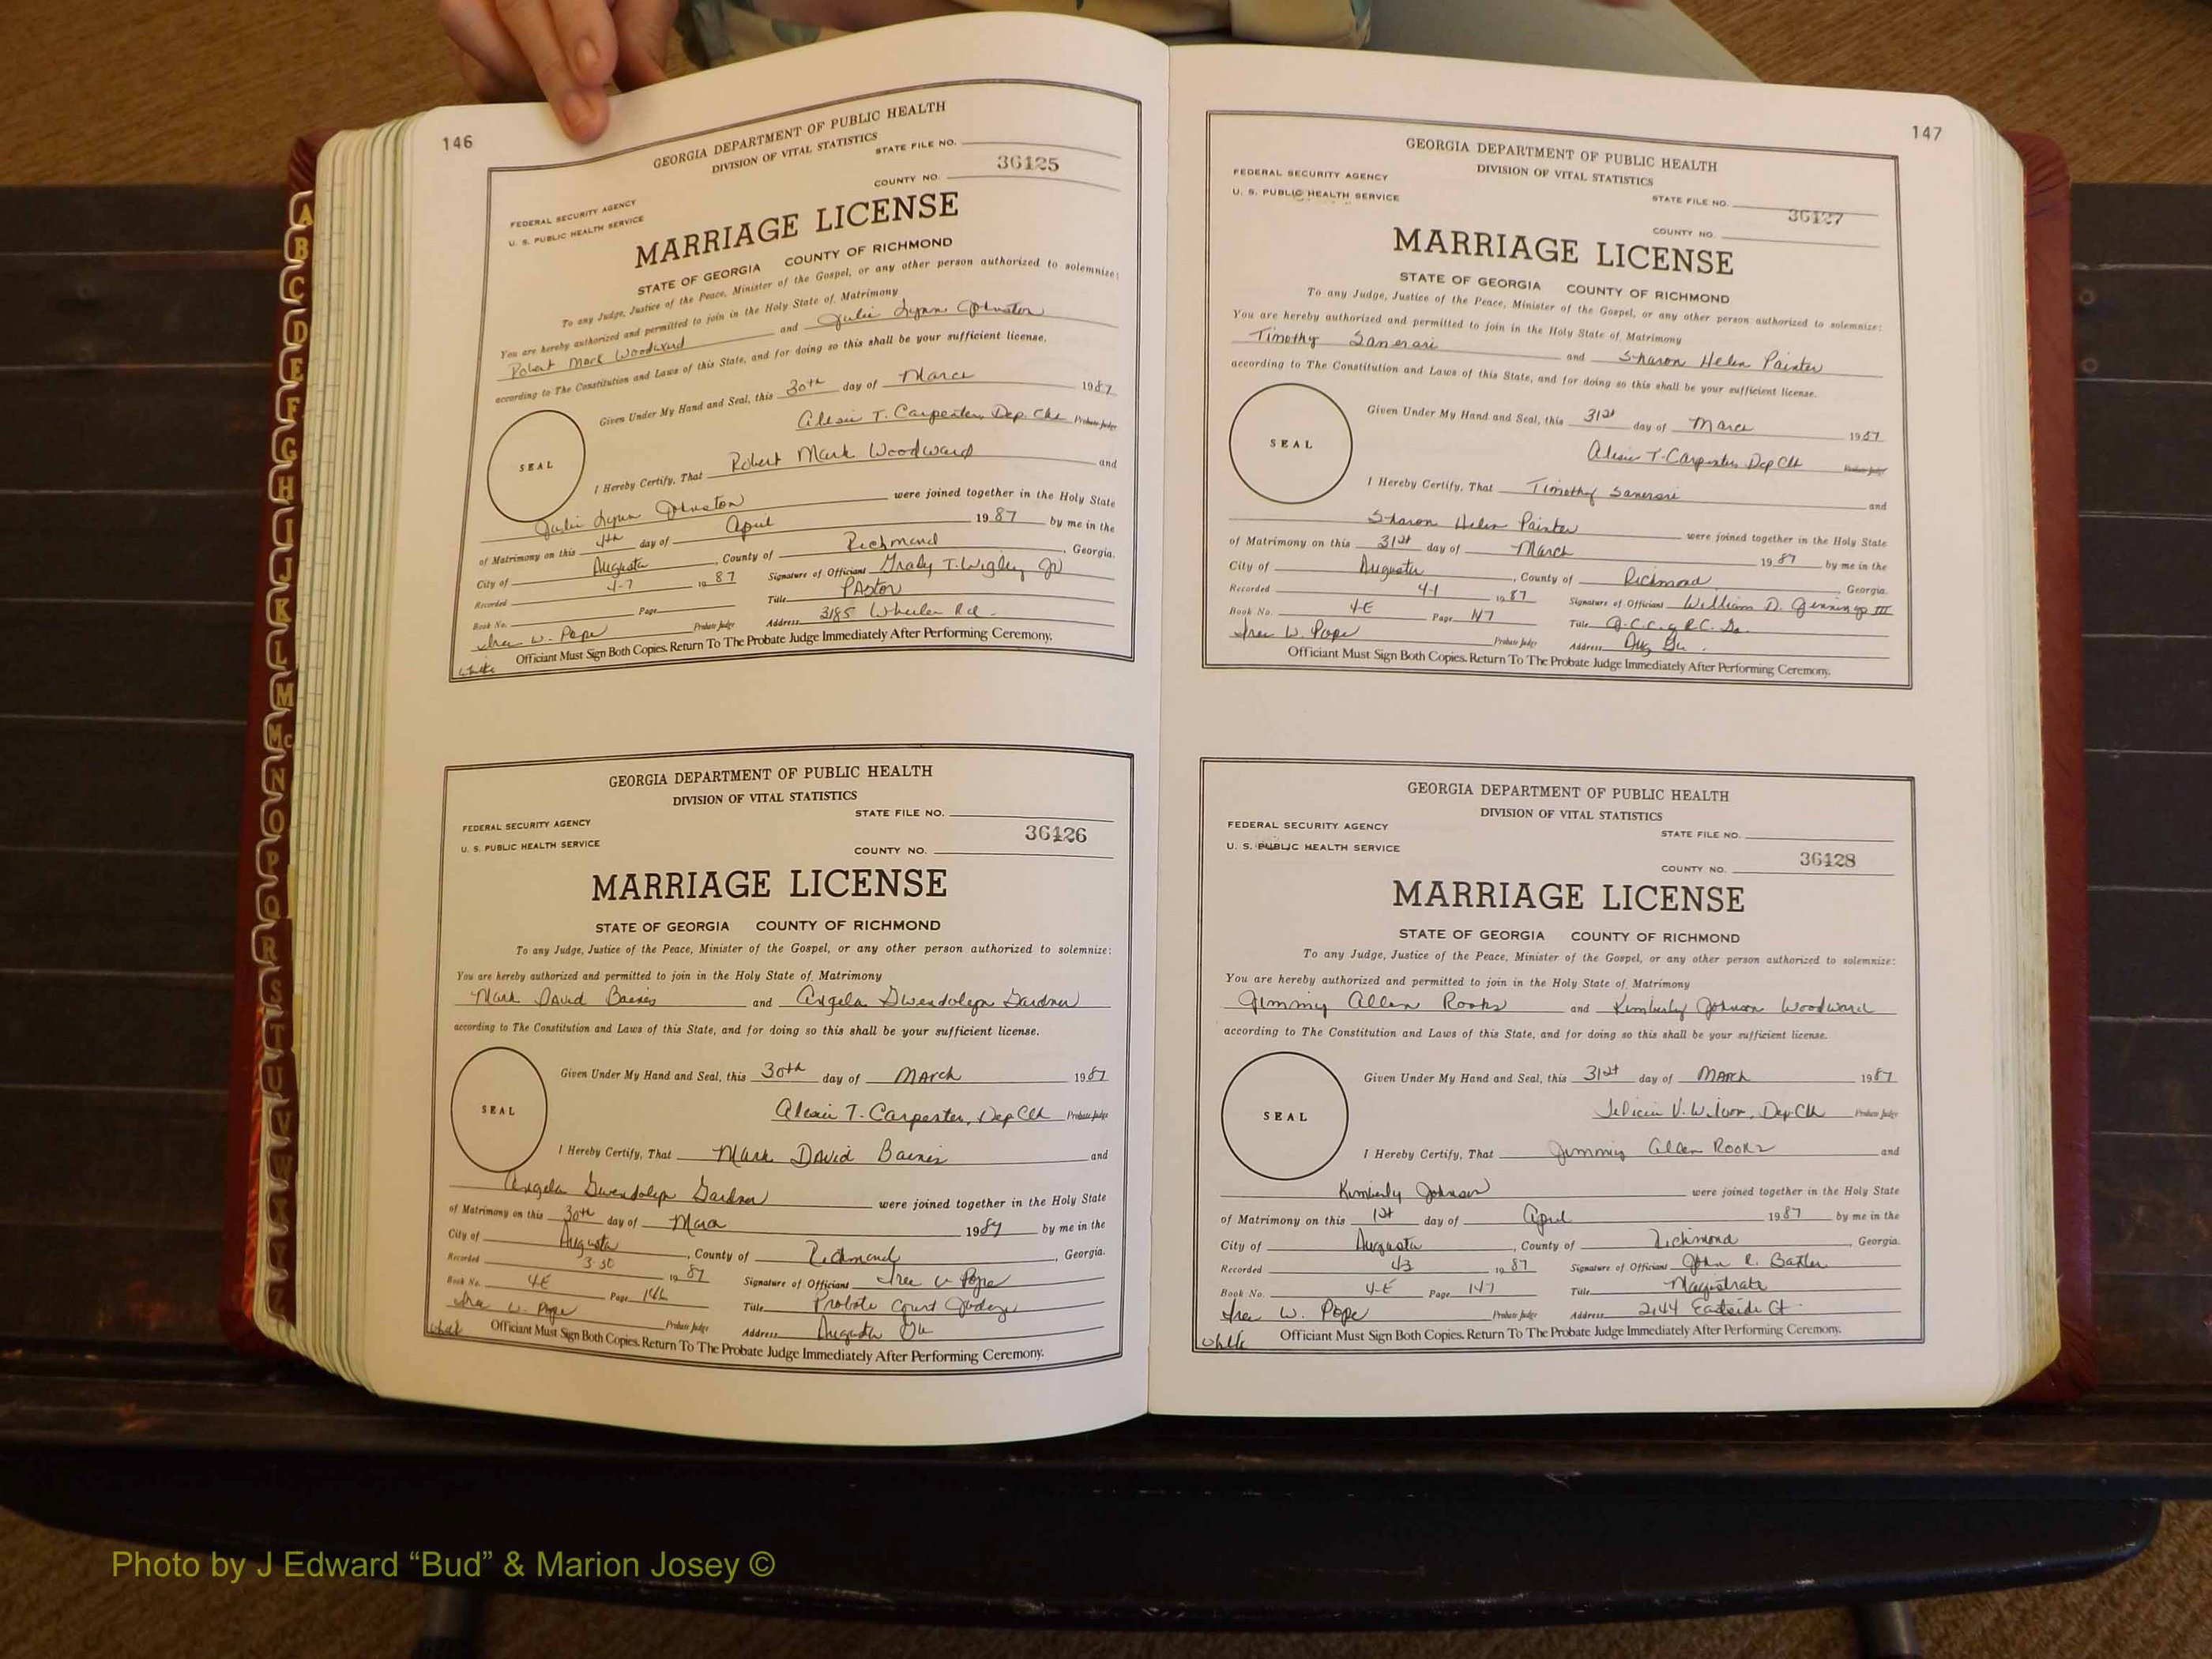 146
GEORGIA DEPARTMENT OF PUBLIC HEALTH
DIVISION OF VITAL STATISTICS
STATE FILE NO.
36125
COUNTY NO.
FEDERAL SECURITY AGENCY
U. S. PUBLIC HEALTH SERVICE
MARRIAGE LICENSE
STATE OF GEORGIA COUNTY OF RICHMOND
To any Judge, Justice of the Peace, Minister of the Gospel, or any other person authorized to solemnize:
You are hereby authorized and permitted to join in the Holy State of Matrimony
Robert Mark Woodward and Julie Lynn Johnston
according to The Constitution and Laws of this State, and for doing so this shall be your sufficient license.
Given Under My Hand and Seal, this 30th day of March 1987
T. Carpenter, Dep. Clk Probate Judge
SEAL
I Hereby Certify, That Robert Mark Woodward and
Julie Lynn Johnston were joined together in the Holy State
of Matrimony on this 4th day of April 1987 by me in the
City of Augusta, County of Richmond, Georgia.
Recorded 4-7 1987 Signature of Officiant Grady T. Wigley Jr
Book No. Page Title Pastor
W. Pope Probate Judge Address 3185 Wheeler Rd.
Officiant Must Sign Both Copies. Return To The Probate Judge Immediately After Performing Ceremony.
white
GEORGIA DEPARTMENT OF PUBLIC HEALTH
DIVISION OF VITAL STATISTICS
STATE FILE NO.
FEDERAL SECURITY AGENCY
36126
U. S. PUBLIC HEALTH SERVICE
COUNTY NO.
MARRIAGE LICENSE
STATE OF GEORGIA COUNTY OF RICHMOND
To any Judge, Justice of the Peace, Minister of the Gospel, or any other person authorized to solemnize:
You are hereby authorized and permitted to join in the Holy State of Matrimony
Mark David Baines and Angela Gwendolyn Gardner
according to The Constitution and Laws of this State, and for doing so this shall be your sufficient license.
Given Under My Hand and Seal, this 30th day of March 1987
T. Carpenter, Dep Clk Probate Judge
SEAL
I Hereby Certify, That Mark David Baines and
Angela Gwendolyn Gardner were joined together in the Holy State
of Matrimony on this 30th day of 1987 by me in the
City of Augusta, County of Richmond, Georgia.
Recorded 3-30 1987 Signature of Officiant Pope
Book No. 4E Page 146 Title Probate Court Judge
W. Pope Probate Judge Address Augusta Ga
Officiant Must Sign Both Copies. Return To The Probate Judge Immediately After Performing Ceremony.
147
GEORGIA DEPARTMENT OF PUBLIC HEALTH
DIVISION OF VITAL STATISTICS
FEDERAL SECURITY AGENCY
STATE FILE NO.
U. S. PUBLIC HEALTH SERVICE
36127
COUNTY NO.
MARRIAGE LICENSE
STATE OF GEORGIA COUNTY OF RICHMOND
To any Judge, Justice of the Peace, Minister of the Gospel, or any other person authorized to solemnize:
You are hereby authorized and permitted to join in the Holy State of Matrimony
Timothy and Sharon Helen Painter
according to The Constitution and Laws of this State, and for doing so this shall be your sufficient license.
Given Under My Hand and Seal, this 31st day of March 1987
T. Carpenter, Dep Clk Probate Judge
SEAL
I Hereby Certify, That Timothy and
Sharon Helen Painter were joined together in the Holy State
of Matrimony on this 31st day of March 1987 by me in the
City of Augusta, County of Richmond, Georgia.
Recorded 4-1 1987 Signature of Officiant William D. Jennings III
Book No. 4-E Page 147 Title
W. Pope Probate Judge Address Aug Ga.
Officiant Must Sign Both Copies. Return To The Probate Judge Immediately After Performing Ceremony.
GEORGIA DEPARTMENT OF PUBLIC HEALTH
DIVISION OF VITAL STATISTICS
FEDERAL SECURITY AGENCY
STATE FILE NO.
U. S. PUBLIC HEALTH SERVICE
36128
COUNTY NO.
MARRIAGE LICENSE
STATE OF GEORGIA COUNTY OF RICHMOND
To any Judge, Justice of the Peace, Minister of the Gospel, or any other person authorized to solemnize:
You are hereby authorized and permitted to join in the Holy State of Matrimony
Jimmy Allen Rooks and Kimberly Johnson Woodward
according to The Constitution and Laws of this State, and for doing so this shall be your sufficient license.
Given Under My Hand and Seal, this 31st day of March 1987
Felicia V. Wilson, Dep. Clk Probate Judge
SEAL
I Hereby Certify, That Jimmy Allen Rooks and
Kimberly Johnson were joined together in the Holy State
of Matrimony on this 1st day of April 1987 by me in the
City of Augusta, County of Richmond, Georgia.
Recorded 4-3 1987 Signature of Officiant John R. Baxter
Book No. 4-E Page 147 Title Magistrate
W. Pope Probate Judge Address 2144 Eastside Ct.
Officiant Must Sign Both Copies. Return To The Probate Judge Immediately After Performing Ceremony.
white
A
B
C
D
E
F
G
H
I
J
K
L
M
Mc
N
O
P
Q
R
S
T
U
V
W
X
Y
Z
Photo by J Edward “Bud” & Marion Josey ©